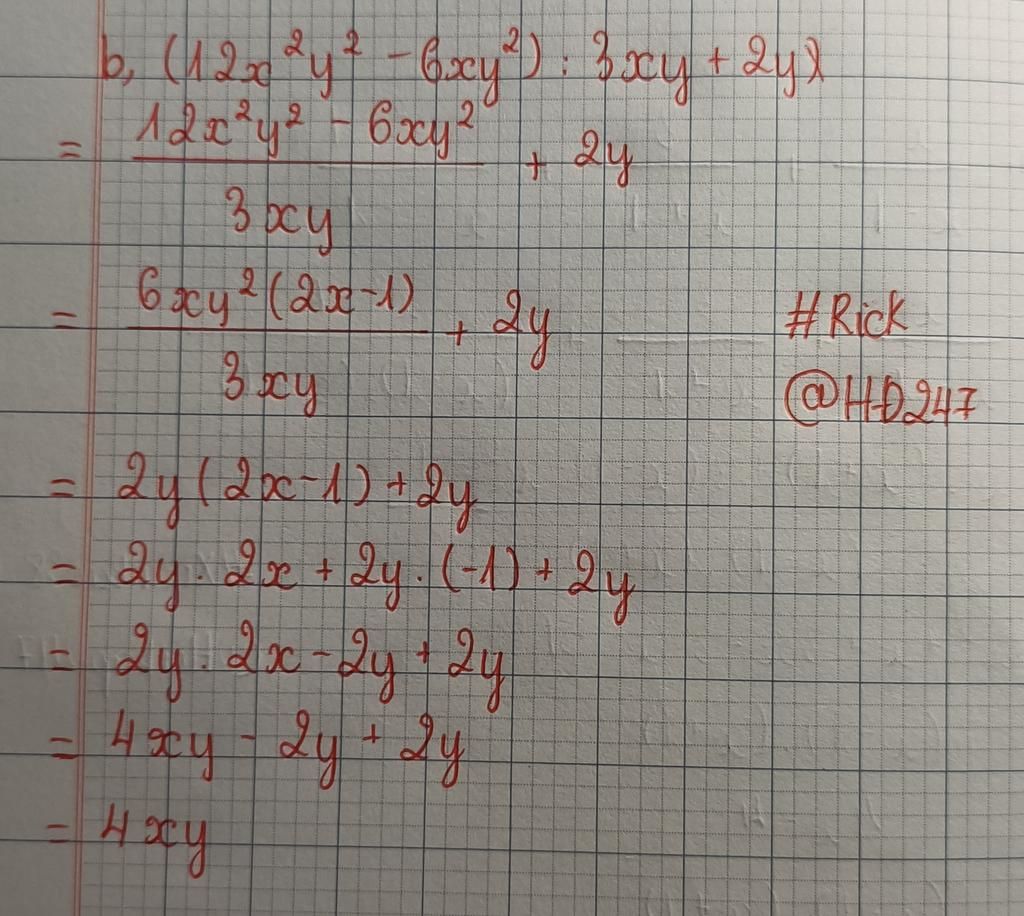 b, (12x²y² - 6xy²) : 3xy + 2y)
= \frac{12x²y² - 6xy²}{3xy} + 2y
= \frac{6xy²(2x-1)}{3xy} + 2y
#Rick
@HD247
= 2y(2x-1)+2y
= 2y. 2x + 2y. (-1) + 2y
= 2y. 2x - 2y + 2y
= 4xy - 2y + 2y
= 4xy